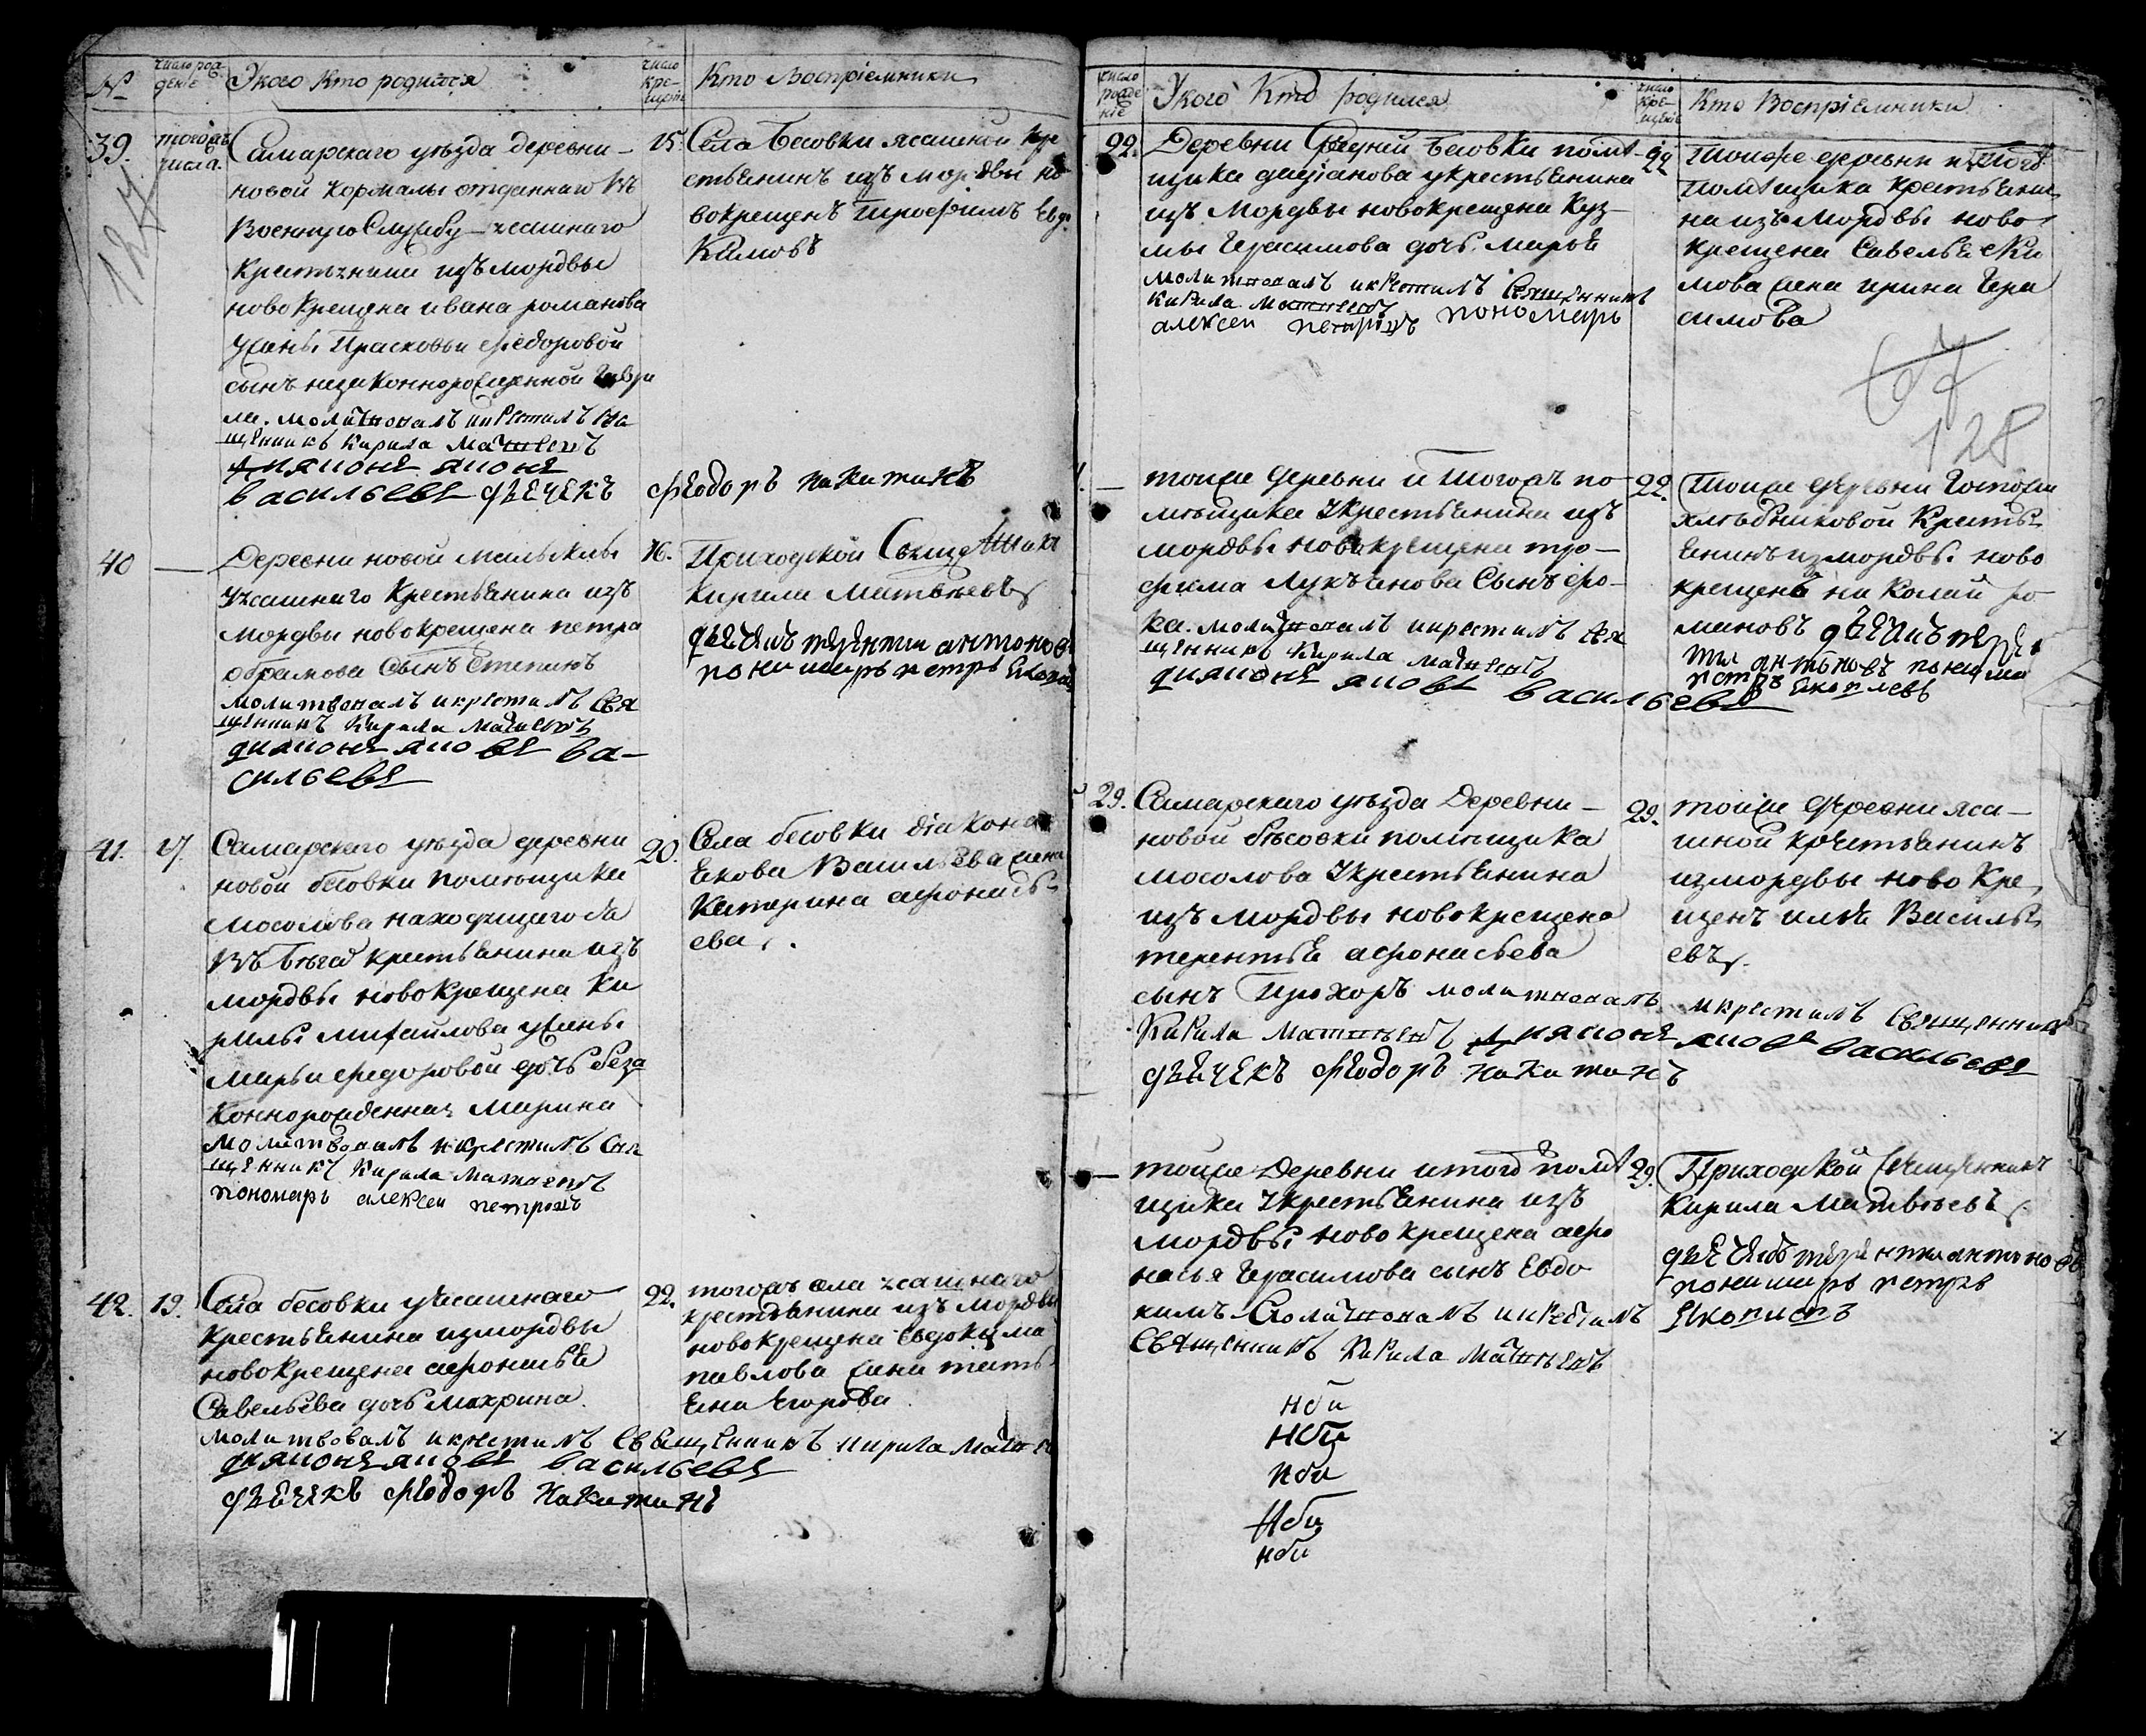 №
число рож
деніе
У кого кто родился
число
кре-
щеніе
Кто восприемники
39.
тогожъ
числа.
Самарскаго уѣзда деревни
новой кормалы отданнаго въ
военную службу ясашнаго
крестьянина изъ мордвы
новокрещена ивана романова
жены Прасковьи федоровой
сынъ незаконнорожденной Гаври
ла. молитвовалъ и крестилъ свя
щенникъ кирила матвеевъ
диаконъ яковъ
васильевъ дьечекъ феодоръ никитинъ
15.
Села Бесовки ясашной кре
стьянинъ изъ мордвы но
вокрещенъ Трофимъ Евдо
кимовъ
127
40
Деревни новой малыклы
ясашнаго крестьянина изъ
мордвы новокрещена петра
обрамова сынъ Степанъ
молитвовалъ и крестилъ свя
щенникъ кирила матвеевъ
диаконъ яковъ ва-
сильевъ
16.
Приходской священникъ
кирила матвѣевъ
дьечекъ терентий антоновъ
пономарь петръ
41.
17.
Самарскаго уѣзда деревни
новой бесовки помѣщика
мосолова находящегося
въ бѣгах крестьянина изъ
мордвы новокрещена ки
рилы михайлова жены
марьи федоровой дочь беза
коннорожденная Марина
молитвовалъ и крестилъ свя
щенникъ кирила матвеевъ
пономарь алексеи петровъ
20.
Села бесовки діакона
Якова Васильева жена
Катерина афонась
ева
42.
19.
Села бесовки ясашнаго
крестьянина из мордвы
новокрещена афонасья
Савельева дочь макрина.
молитвовалъ и крестилъ священникъ кирила матвеевъ
диаконъ яковъ васильевъ
дьечекъ феодоръ никитинъ
22.
тогожъ села ясашнаго
крестьянина изъ мордвы
новокрещена евдокима
павлова жена тать
яна Егорова
число
рожде
ніе
У кого кто родился
число
кре-
щеніе
Кто восприемники
22.
Деревни Средней бесовки помѣ
щика у крестьянина
изъ мордвы новокрещена куз
мы Герасимова дочь марья
молитвовалъ и крестилъ священникъ
кирила матвеевъ
алексеи петровъ пономарь
22
Тойже деревни и того
помѣщика крестьяни
на изъ мордвы ново
крещена савелья еки
мова жена ирина Гера
симова
67
128
тойже деревни и тогожъ по
мѣщика у крестьянина изъ
мордвы новокрещена тро
фима Лукьянова сынъ фо
ка. молитвовалъ и крестилъ свя
щенникъ кирила матвеевъ
диаконъ яковъ васильевъ
22.
Тойже деревни Госпожи
хлѣбниковой крестья
янинъ из мордвы ново
крещенъ николай ро
мановъ дьечекъ терен
ти антоновъ понома
петръ
29.
Самарскаго уѣзда Деревни
новой бѣсовки помѣщика
мосолова у крестьянина
изъ мордвы новокрещена
терентья афонасьева
сынъ Прохоръ молитвовалъ и крестилъ священникъ
кирила матвѣевъ диаконъ яковъ васильевъ
дьечекъ феодоръ никитинъ
29.
тойже деревни яса
шной крестьянинъ
из мордвы ново кре
щенъ илья Василь
евъ.
тойже Деревни и того помѣ
щика у крестьянина изъ
мордвы новокрещена афо
насья Герасимова сынъ Евдо
кимъ молитвовалъ и крестилъ
священникъ кирила матвѣевъ
29.
Приходской священникъ
Кирила Матвѣевъ
дьечекъ терентии антоновъ
пономарь петръ